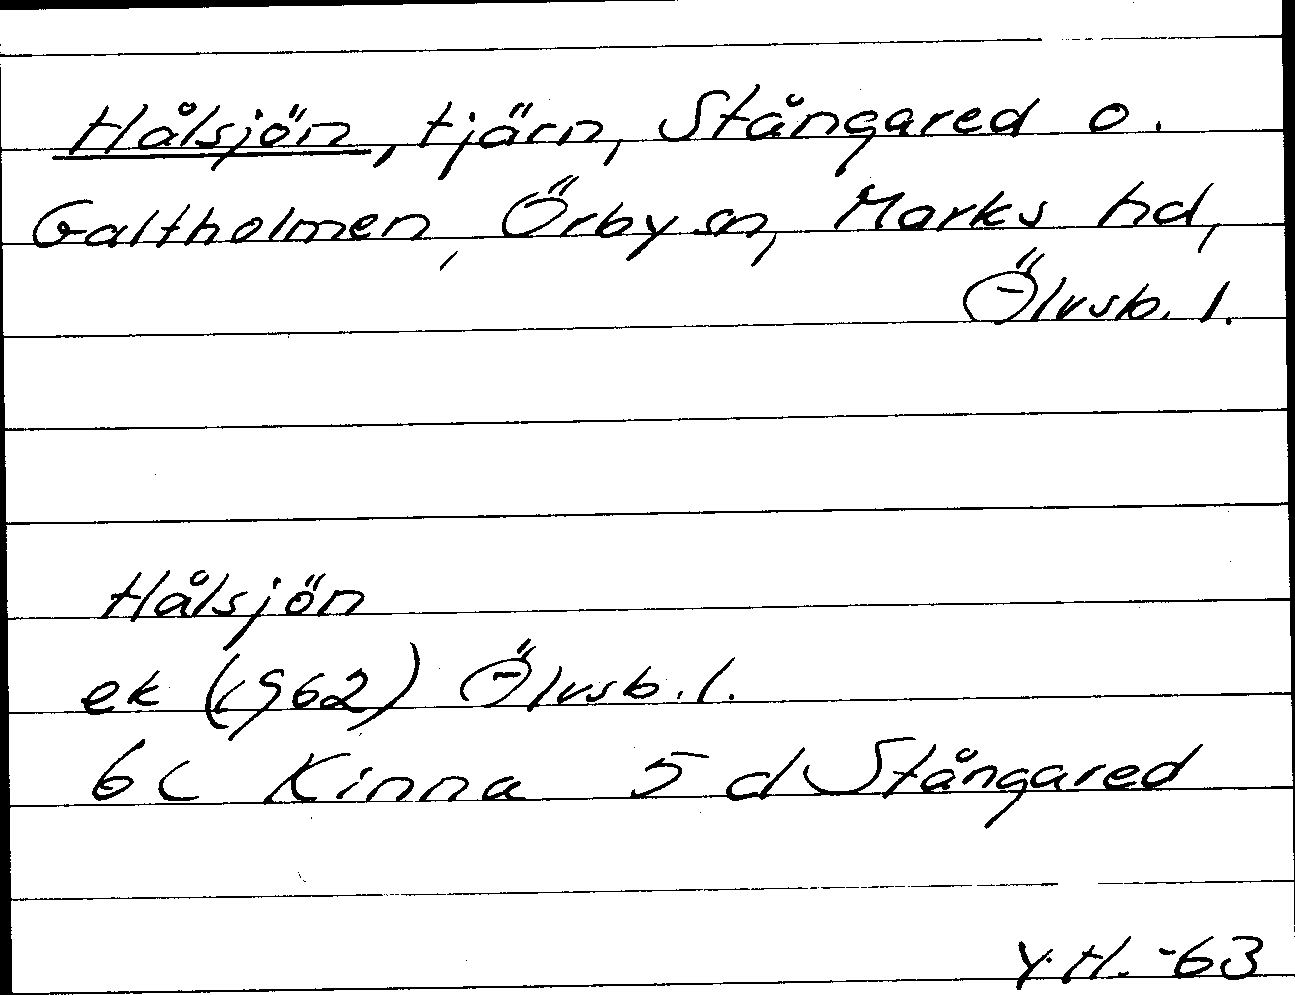 Hålsjön, tjärn, Stångared o.
Galtholmen, Örby sn, Marks hd,
Älvsb. l.
Hålsjön
ek (1962) Älvsb. l.
6C Kinna 5 d Stångared
Y. H. -63